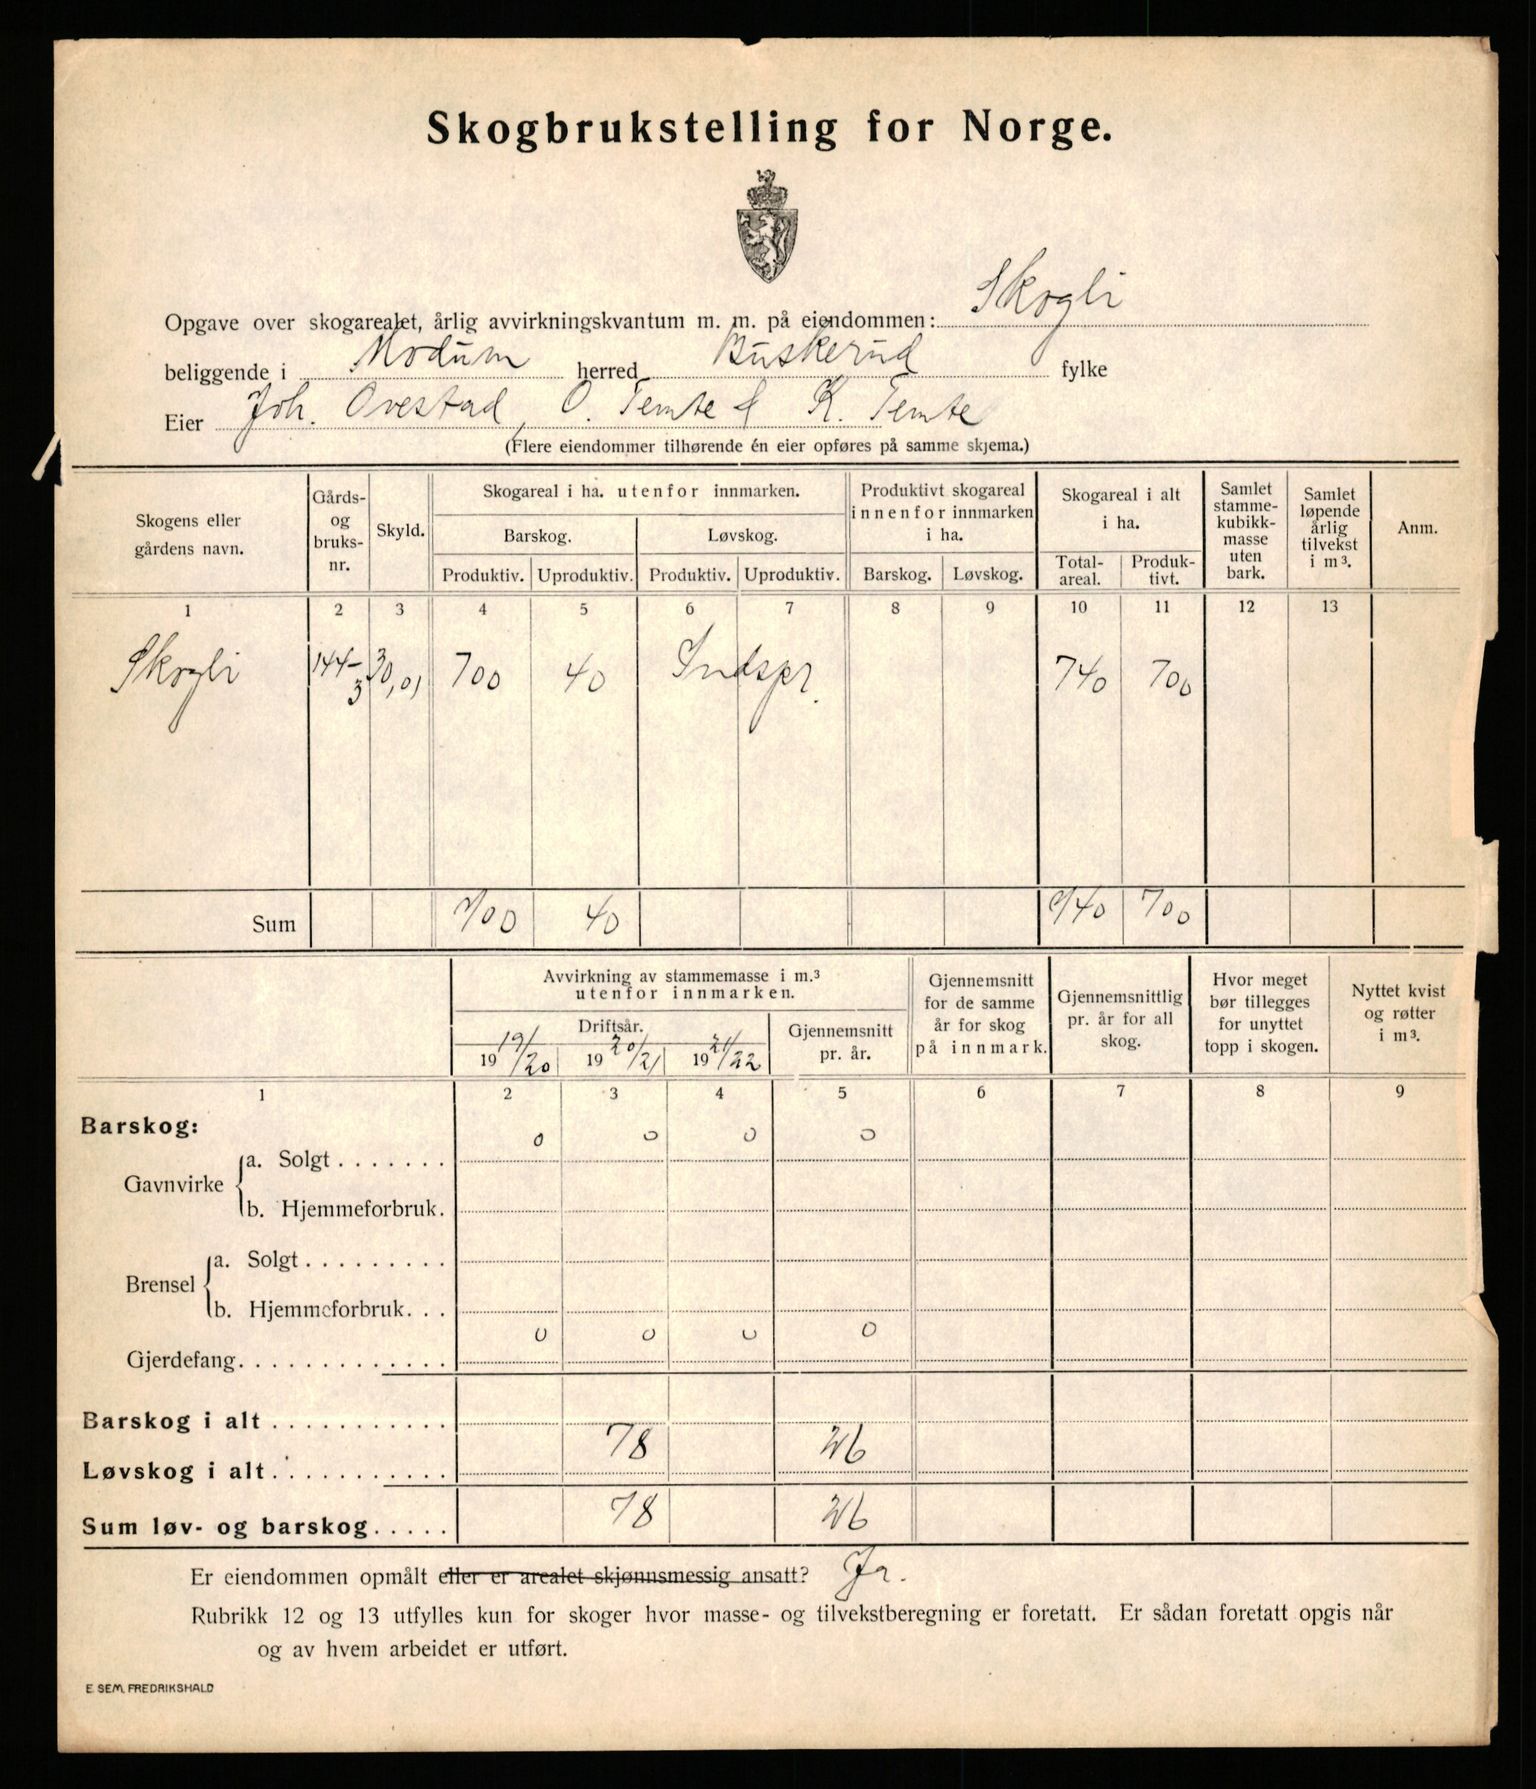 Skogbrukstelling for Norge.
Opgave over skogarealet, årlig avvirkningskvantum m. m. på eiendommen: Skogli
beliggende i Modum herred Buskerud fylke
Eier Joh. Ovestad, O. Temte & K. Temte
(Flere eiendommer tilhørende én eier opføres på samme skjema.)
Skogens eller gårdens navn.
Gårds- og bruks-nr.
Skyld.
Skogareal i ha. utenfor innmarken.
Barskog. Løvskog.
Produktiv. Uproduktiv. Produktiv. Uproduktiv.
Produktivt skogareal innenfor innmarken i ha.
Barskog. Løvskog.
Skogareal i alt i ha.
Total-areal. Produk-tivt.
Samlet stamme-kubikk-masse uten bark.
Samlet løpende årlig tilvekst i m³.
Anm.
1 2 3 4 5 6 7 8 9 10 11 12 13
Skogli 144-3 30,01 700 40 Indspr. 740 700
Sum 700 40 740 700
Avvirkning av stammemasse i m.³ utenfor innmarken.
Driftsår.
1919/20 1920/21 1921/22
Gjennemsnitt pr. år.
Gjennemsnitt for de samme år for skog på innmark.
Gjennemsnittlig pr. år for all skog.
Hvor meget bør tillegges for unyttet topp i skogen.
Nyttet kvist og røtter i m³.
1 2 3 4 5 6 7 8 9
Barskog:
0 0 0 0
Gavnvirke
a. Solgt . . . . . . .
b. Hjemmeforbruk.
Brensel
a. Solgt . . . . . . . . .
b. Hjemmeforbruk. . .
0 0 0 0
Gjerdefang. . . . . . . . . . . . .
Barskog i alt . . . . . . . . . . .
78 26
Løvskog i alt . . . . . . . . . . .
Sum løv- og barskog . . . . . 78 26
Er eiendommen opmålt eller er arealet skjønnsmessig ansatt? Ja.
Rubrikk 12 og 13 utfylles kun for skoger hvor masse- og tilvekstberegning er foretatt. Er sådan foretatt opgis når
og av hvem arbeidet er utført.
E. SEM, FREDRIKSHALD